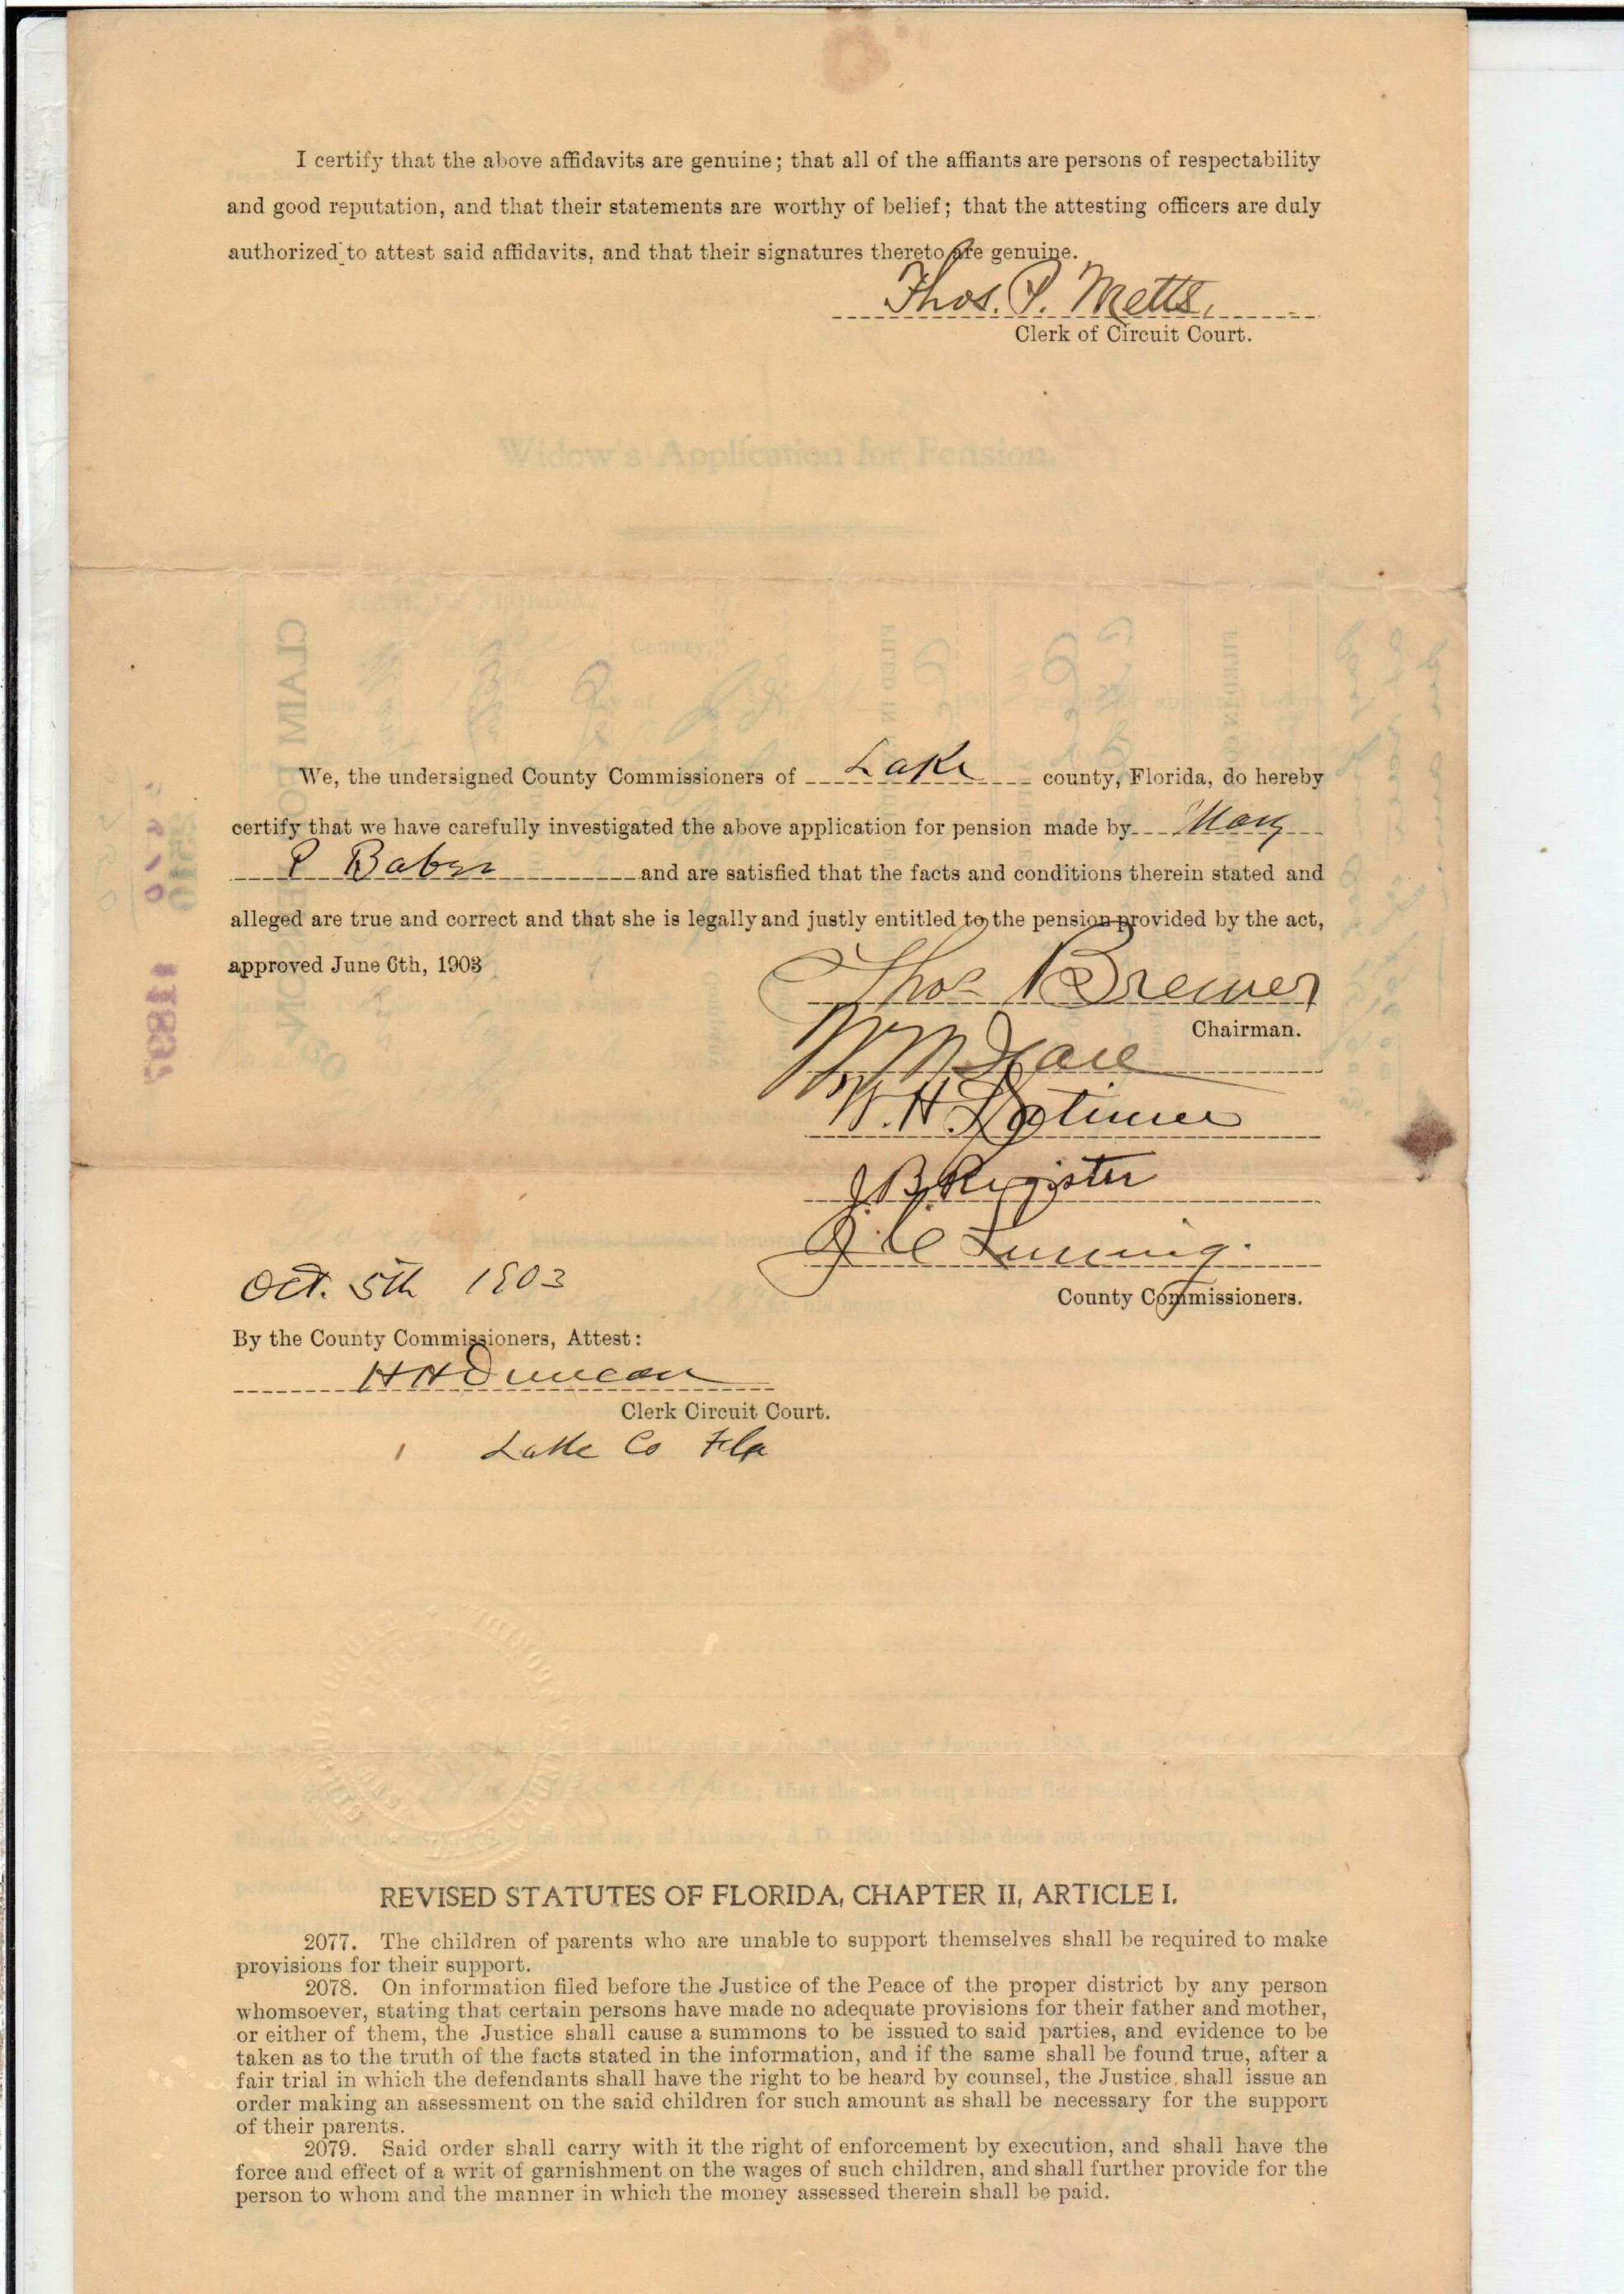 I certify that the above affidavits are genuine; that all of the affiants are persons of respectability
and good reputation, and that their statements are worthy of belief; that the attesting officers are duly
authorized to attest said affidavits, and that their signatures thereto are genuine.
Thos. P. Metts,
Clerk of Circuit Court.
Widow's Application for Pension.
We, the undersigned County Commissioners of Lake county, Florida, do hereby
certify that we have carefully investigated the above application for pension made by Mary
P Baber and are satisfied that the facts and conditions therein stated and
alleged are true and correct and that she is legally and justly entitled to the pension provided by the act,
approved June 6th, 1903
Thos Brewer
Chairman.
W.H. Latimer
J.B. Register
J. C. Luning.
Oct. 5th 1903
County Commissioners.
By the County Commissioners, Attest:
H H Duncan
Clerk Circuit Court.
Lake Co Fla
REVISED STATUTES OF FLORIDA, CHAPTER II, ARTICLE I.
2077. The children of parents who are unable to support themselves shall be required to make
provisions for their support.
2078. On information filed before the Justice of the Peace of the proper district by any person
whomsoever, stating that certain persons have made no adequate provisions for their father and mother,
or either of them, the Justice shall cause a summons to be issued to said parties, and evidence to be
taken as to the truth of the facts stated in the information, and if the same shall be found true, after a
fair trial in which the defendants shall have the right to be heard by counsel, the Justice shall issue an
order making an assessment on the said children for such amount as shall be necessary for the support
of their parents.
2079. Said order shall carry with it the right of enforcement by execution, and shall have the
force and effect of a writ of garnishment on the wages of such children, and shall further provide for the
person to whom and the manner in which the money assessed therein shall be paid.